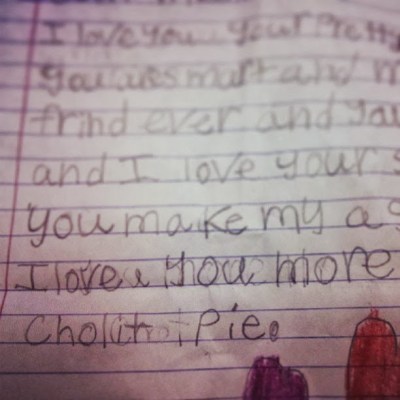 I love you your Pretty
you are smart and m
frind ever and you
and I love your s
you make my a
I love you more
Cholitt Pie.